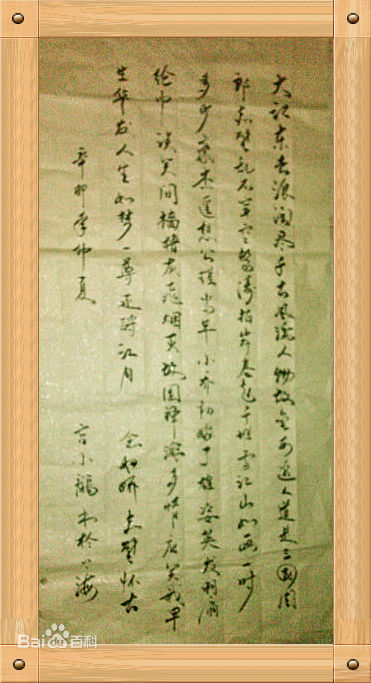 大江东去浪淘尽千古风流人物故垒西边人道是三國周
郎赤壁乱石穿空惊涛拍岸卷起千堆雪江山如画一时
多少豪杰遥想公瑾当年小乔初嫁了雄姿英发羽扇
纶巾谈笑间樯橹灰飞烟灭故国神游多情应笑我早
生华发人生如梦一尊还酹江月 念奴娇赤壁怀古
辛卯年仲夏 言小 书于上海
Bai 百科